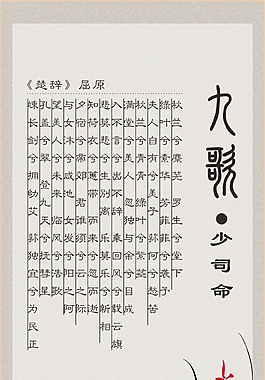 九歌●少司命
《楚辞》 屈原
秋兰兮麋芜 罗生兮堂下
绿叶兮素华 芳菲菲兮袭予
夫人自有兮美子 荪何兮愁苦
秋兰兮青青 绿叶兮紫茎
满堂兮美人 忽独与余兮目成
入不言兮出不辞 乘回风兮载云旗
悲莫悲兮生别离 乐莫乐兮新相
知荷衣兮蕙带 而来兮忽而逝
夕宿兮帝郊 君谁须兮云之际
与女沐兮咸池 女发兮阳之阿
望美人兮未来 临风兮浩歌
孔盖兮翠 登九天兮抚彗星
竦长剑兮拥幼艾 荪独宜兮为民正